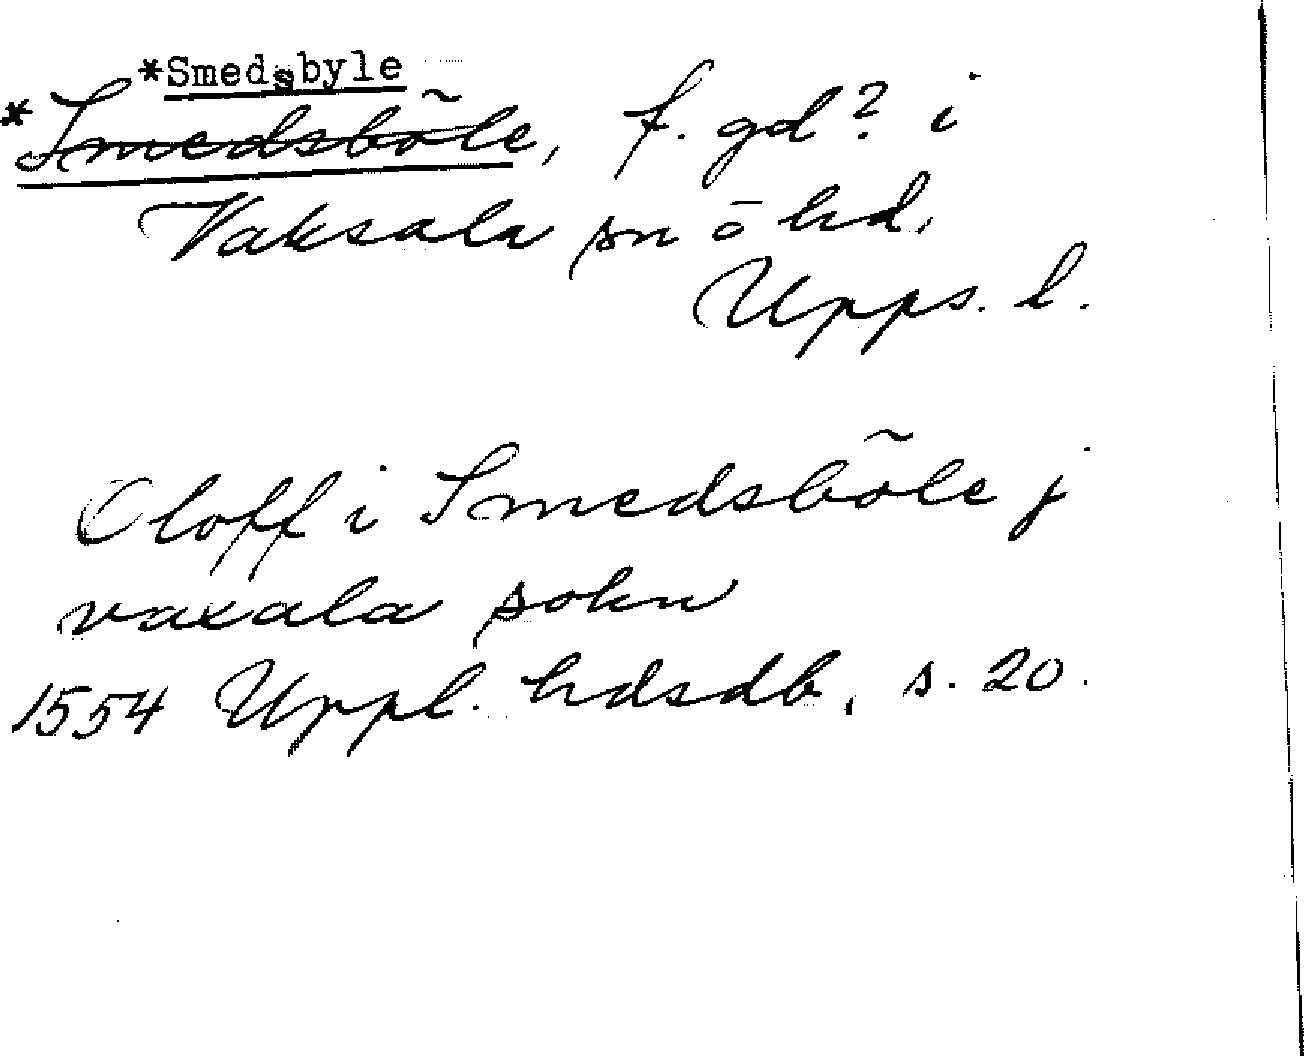 *Smedsbyle
*Smedsböle, f. gd? i
Vaksala sn o hd.
Upps. l.
Oloff i Smedsböle j
vaxala sokn
1554 Uppl. hdsdb, s. 20.